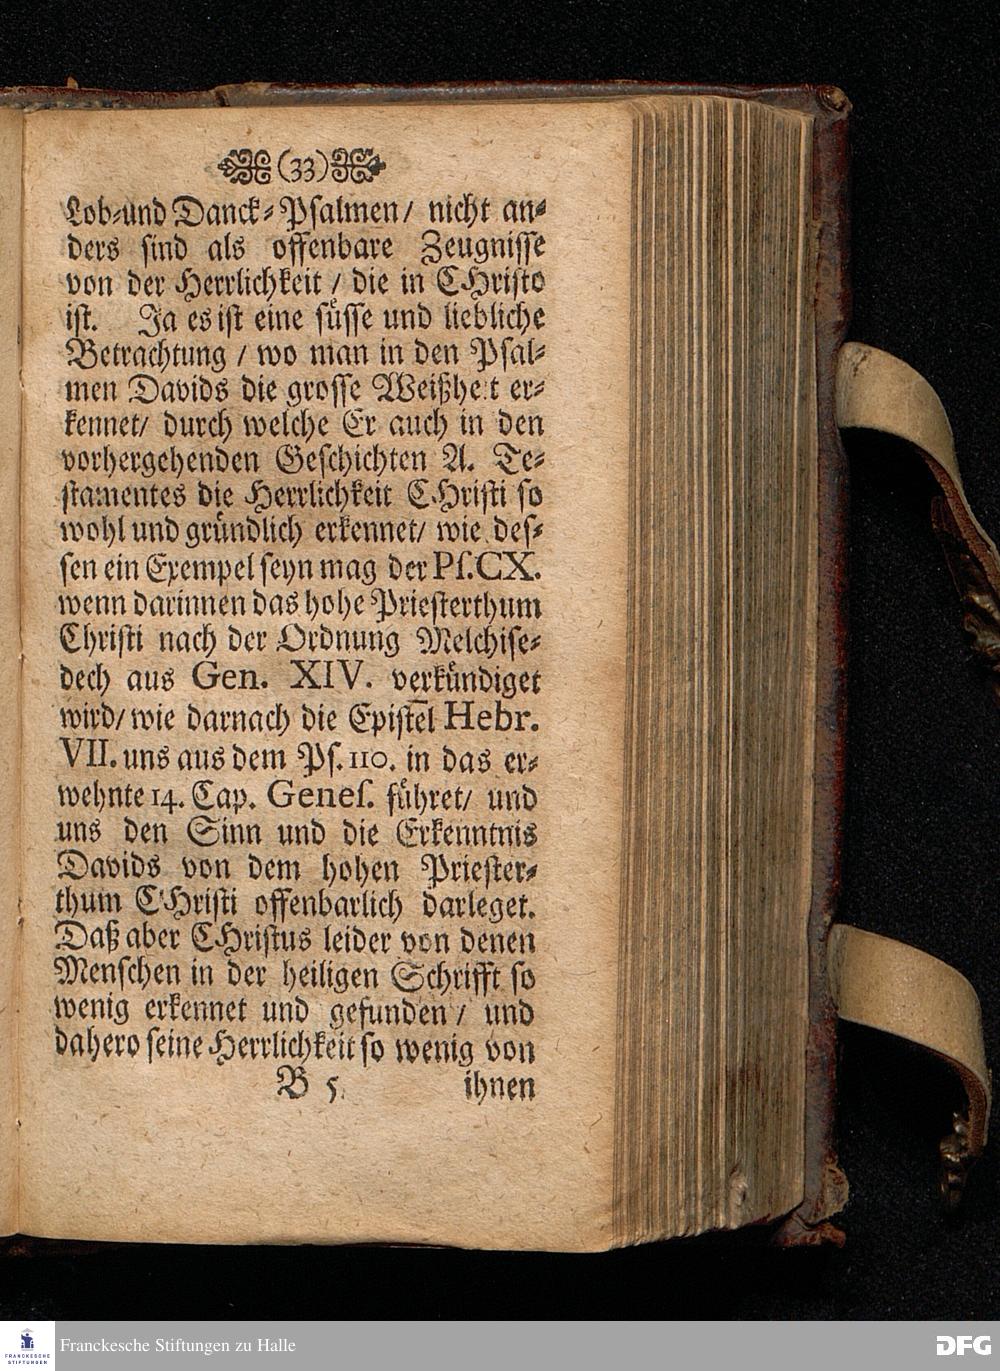 (33)
Lob-und Danck-Psalmen/ nicht an-
ders sind als offenbare Zeugnisse
von der Herrlichkeit / die in CHristo
ist. Ja es ist eine süsse und liebliche
Betrachtung / wo man in den Psal-
men Davids die grosse Weißheit er-
kennet/ durch welche Er auch in den
vorhergehenden Geschichten A. Te-
stamentes die Herrlichkeit CHristi so
wohl und gründlich erkennet/ wie des-
sen ein Exempel seyn mag der Ps. CX.
wenn darinnen das hohe Priesterthum
Christi nach der Ordnung Melchise-
dech aus Gen. XIV. verkündiget
wird/ wie darnach die Epistel Hebr.
VII. uns aus dem Ps. 110. in das er-
wehnte 14. Cap. Genes. führet/ und
uns den Sinn und die Erkenntnis
Davids von dem hohen Priester-
thum CHristi offenbarlich darleget.
Daß aber CHristus leider von denen
Menschen in der heiligen Schrifft so
wenig erkennet und gefunden / und
dahero seine Herrlichkeit so wenig von
B 5. ihnen
FRANCKESCHE STIFTUNGEN
Franckesche Stiftungen zu Halle
DFG